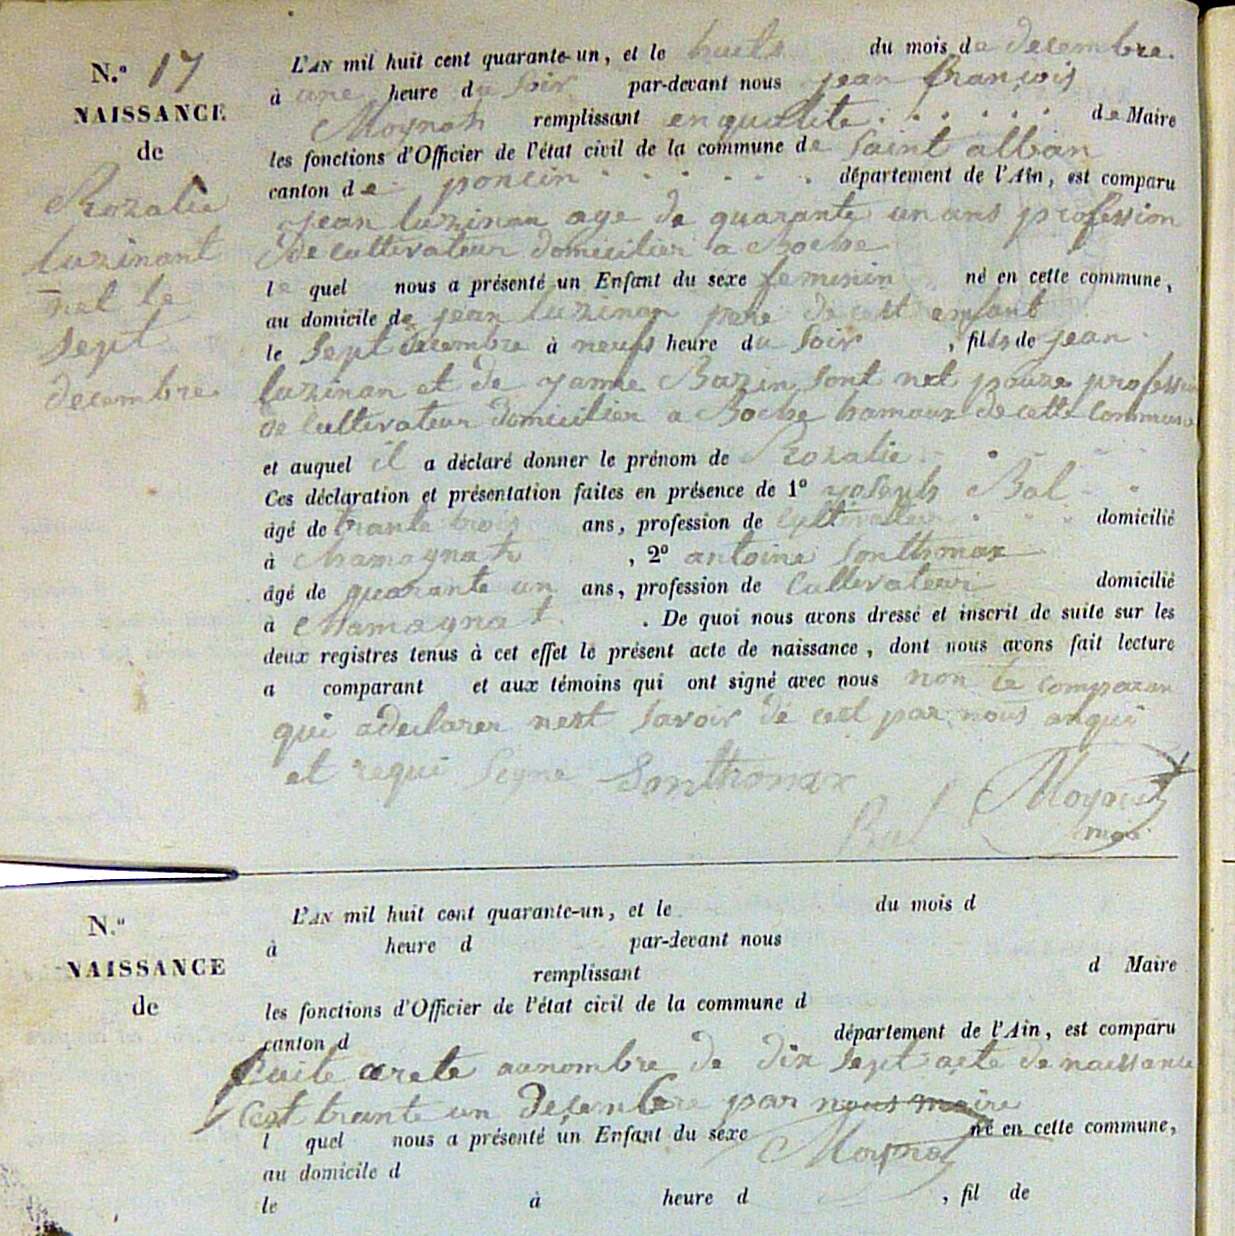 N.° 17
NAISSANCE
de
Rozalie
luzinant
net le
sept
decembre
L'AN mil huit cent quarante-un, et le huits du mois de decembre.
à une heure du soir par-devant nous jean françois
Moynat remplissant en qualite . . . . . . de Maire
les fonctions d'Officier de l'état civil de la commune de saint alban
canton de poncin . . . . . . département de l'Ain, est comparu
jean luzinan age de quarante un ans profession
de cultivateur domicilier a Boche
le quel nous a présenté un Enfant du sexe feminin né en cette commune,
au domicile de jean luzinan pere de cest enfant
le sept decembre à neufs heure du soir , fil de jean
luzinan et de Bazin sont net pouze profession
de cultivateur domicilier a Boche hamaux de cette commune
et auquel il a déclaré donner le prénom de Rozalie
Ces déclaration et présentation faites en présence de 1° joseph Bal
âgé de trante trois ans, profession de cultivateur domicilié
à Chamagnat , 2° antoine Sonthonax
âgé de quarante un ans, profession de cultivateur domicilié
à Chamagnat . De quoi nous avons dressé et inscrit de suite sur les
deux registres tenus à cet effet le présent acte de naissance, dont nous avons fait lecture
a comparant et aux témoins qui ont signé avec nous non le comparan
qui a declarer nest savoir de cest par nous anqui
et requi Segne Sonthonax
Bal Moynat
N.°
NAISSANCE
de
L'AN mil huit cent quarante-un, et le du mois d
à heure d par-devant nous
remplissant d Maire
les fonctions d'Officier de l'état civil de la commune d
canton d département de l'Ain, est comparu
arete aunombre de dix sept acte de naissance
Cest trante un Decembre par nous maire
l quel nous a présenté un Enfant du sexe né en cette commune,
Moynat
au domicile d
le à heure d , fil de